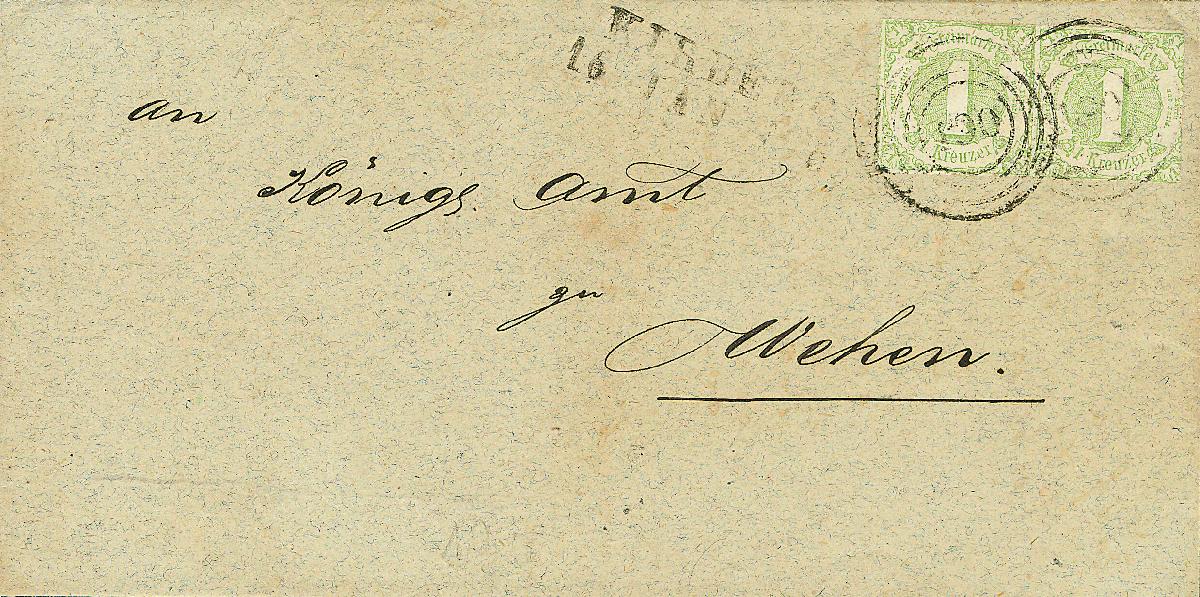 16 JAN
Freimarke
1
1 Kreuzer
Freimarke
1
1 Kreuzer
an
Königl. Amt
zu
Wehen.